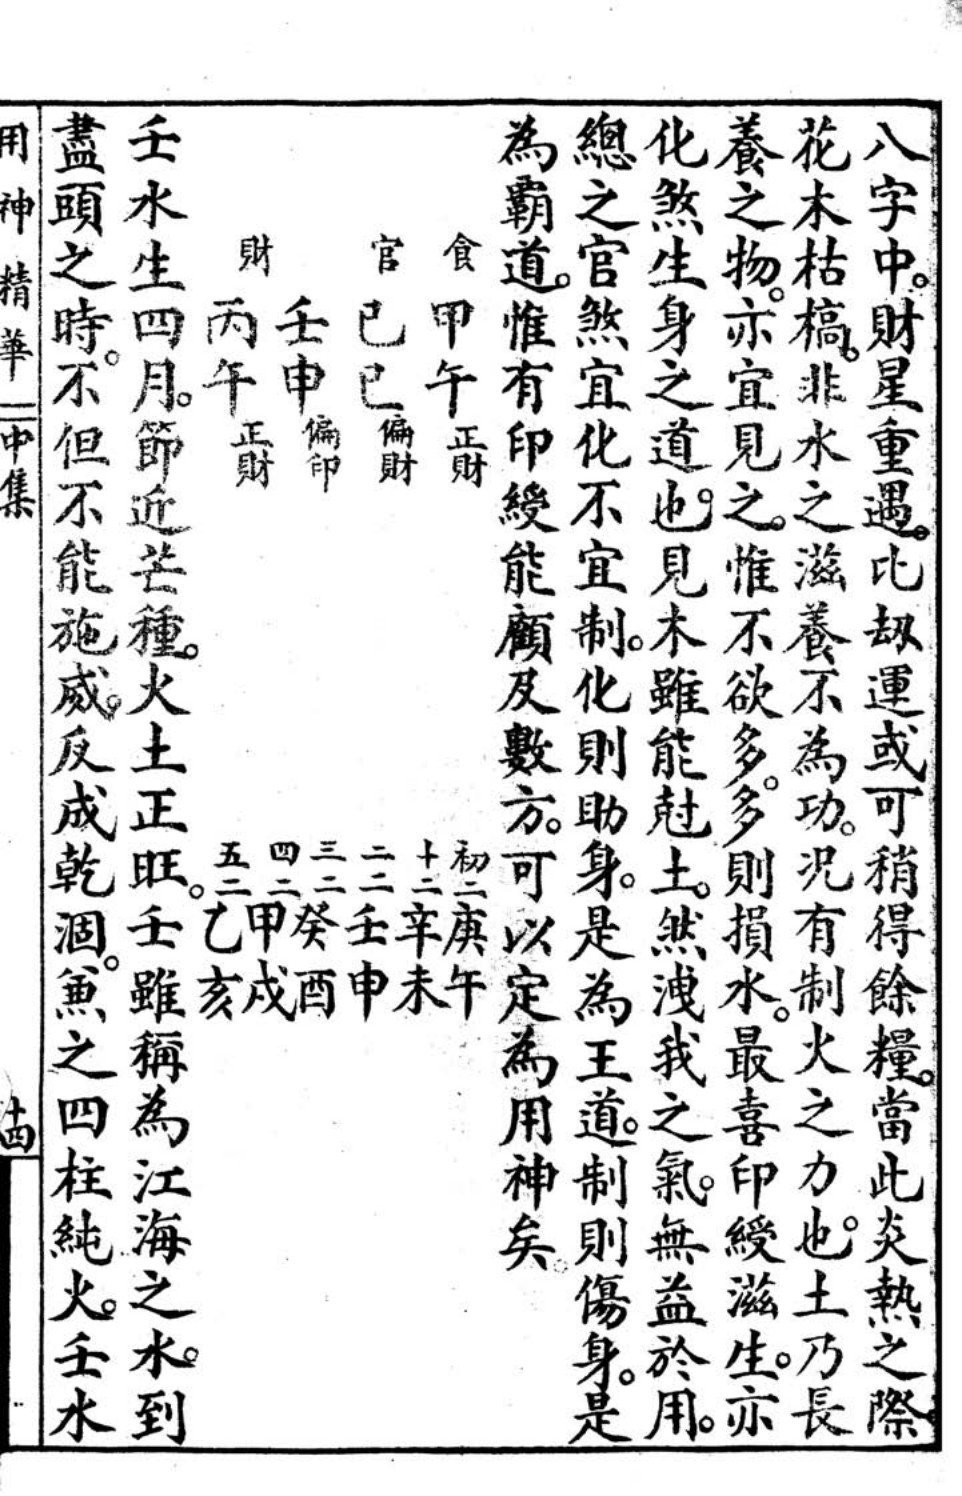 八字中。財星重遇。比刼運或可稍得餘糧。當此炎熱之際
花木枯槁。非水之滋養不為功。况有制火之力也。土乃長
養之物。亦宜見之。惟不欲多。多則損水。最喜印綬滋生。亦
化煞生身之道也。見木雖能尅土。然洩我之氣。無益於用。
總之官煞宜化不宜制。化則助身。是為王道。制則傷身。是
為霸道。惟有印綬能顧及數方。可以定為用神矣。
食 甲午 正財 初二 庚午
十二 辛未
官 己巳 偏財 二二 壬申
壬申 偏印 三二 癸酉
四二 甲戌
財 丙午 正財 五二 乙亥
壬水生四月。節近芒種。火土正旺。壬雖稱為江海之水。到
盡頭之時。不但不能施威。反成乾涸。兼之四柱純火。壬水
用神精華 二 中集 十四